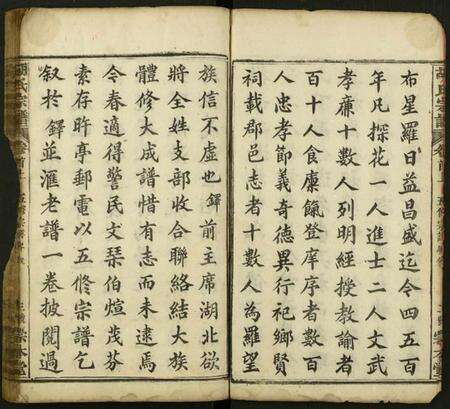 胡氏宗譜 卷首
布星羅日益昌盛迄今四五百
年凡探花一人進士二人文武
孝廉十數人列明經授教諭者
百十人食廩餼登庠序者數百
人忠孝節義奇德異行祀鄉賢
祠載郡邑志者十數人為羅望
族信不虛也鐸前主席湖北欲
將全姓支部收合聯絡結大族
體修大成譜惜有志而未逮焉
今春適得警民文琹伯煊茂芬
素存亭郵電以五修宗譜乞
叙於鐸並滙老譜一卷披閱過
胡氏宗譜 卷首 崇本堂